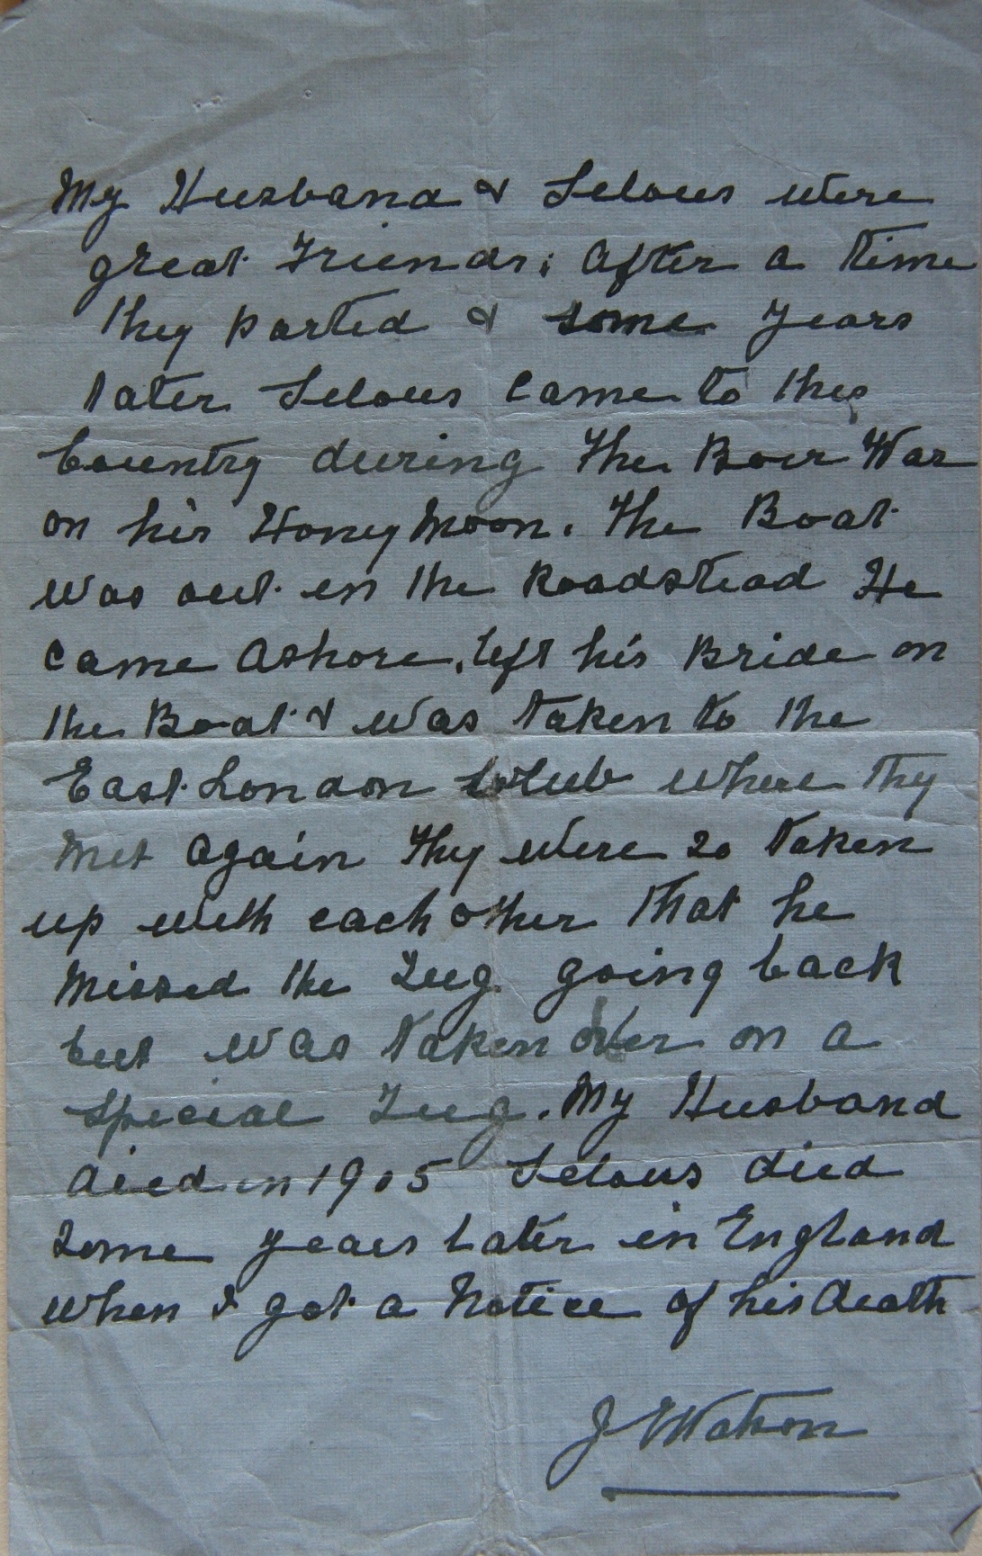 My Husband & Selous were
great Friends; After a time
they parted & some years
later Selous came to this
Country during The Boer War
on his HoneyMoon. The Boat
was out in the Roadstead He
came Ashore, left his Bride on
the Boat & was taken to the
East London Club where thy
Met Again They were so taken
up with each other That he
Missed the Tug going back
but was taken over on a
special Tug. My Husband
died in 1905 Selous died
Some years later in England
when I got a Notice of his death
J Watson